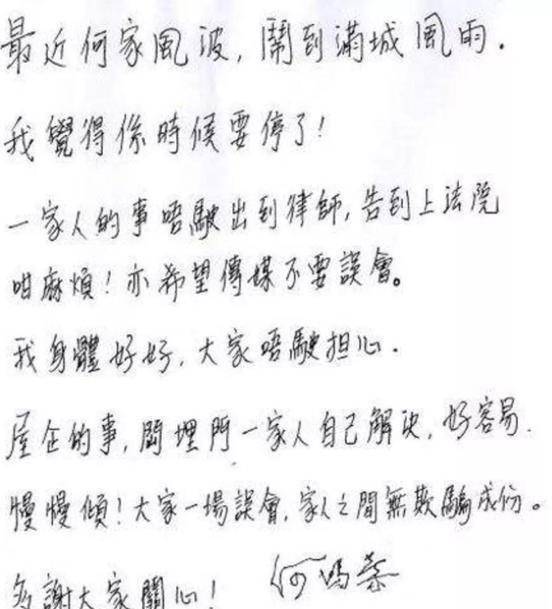 最近何家風波，鬧到滿城風雨．
我覺得係時候要停了！
一家人的事唔駛出到律師，告到上法院
咁麻煩！亦希望傳媒不要誤會。
我身體好好，大家唔駛担心．
屋企的事，關埋門一家人自己解決，好容易．
慢慢傾！大家一場誤會，家人之間無欺騙成份。
多謝大家關心！ 何鴻燊